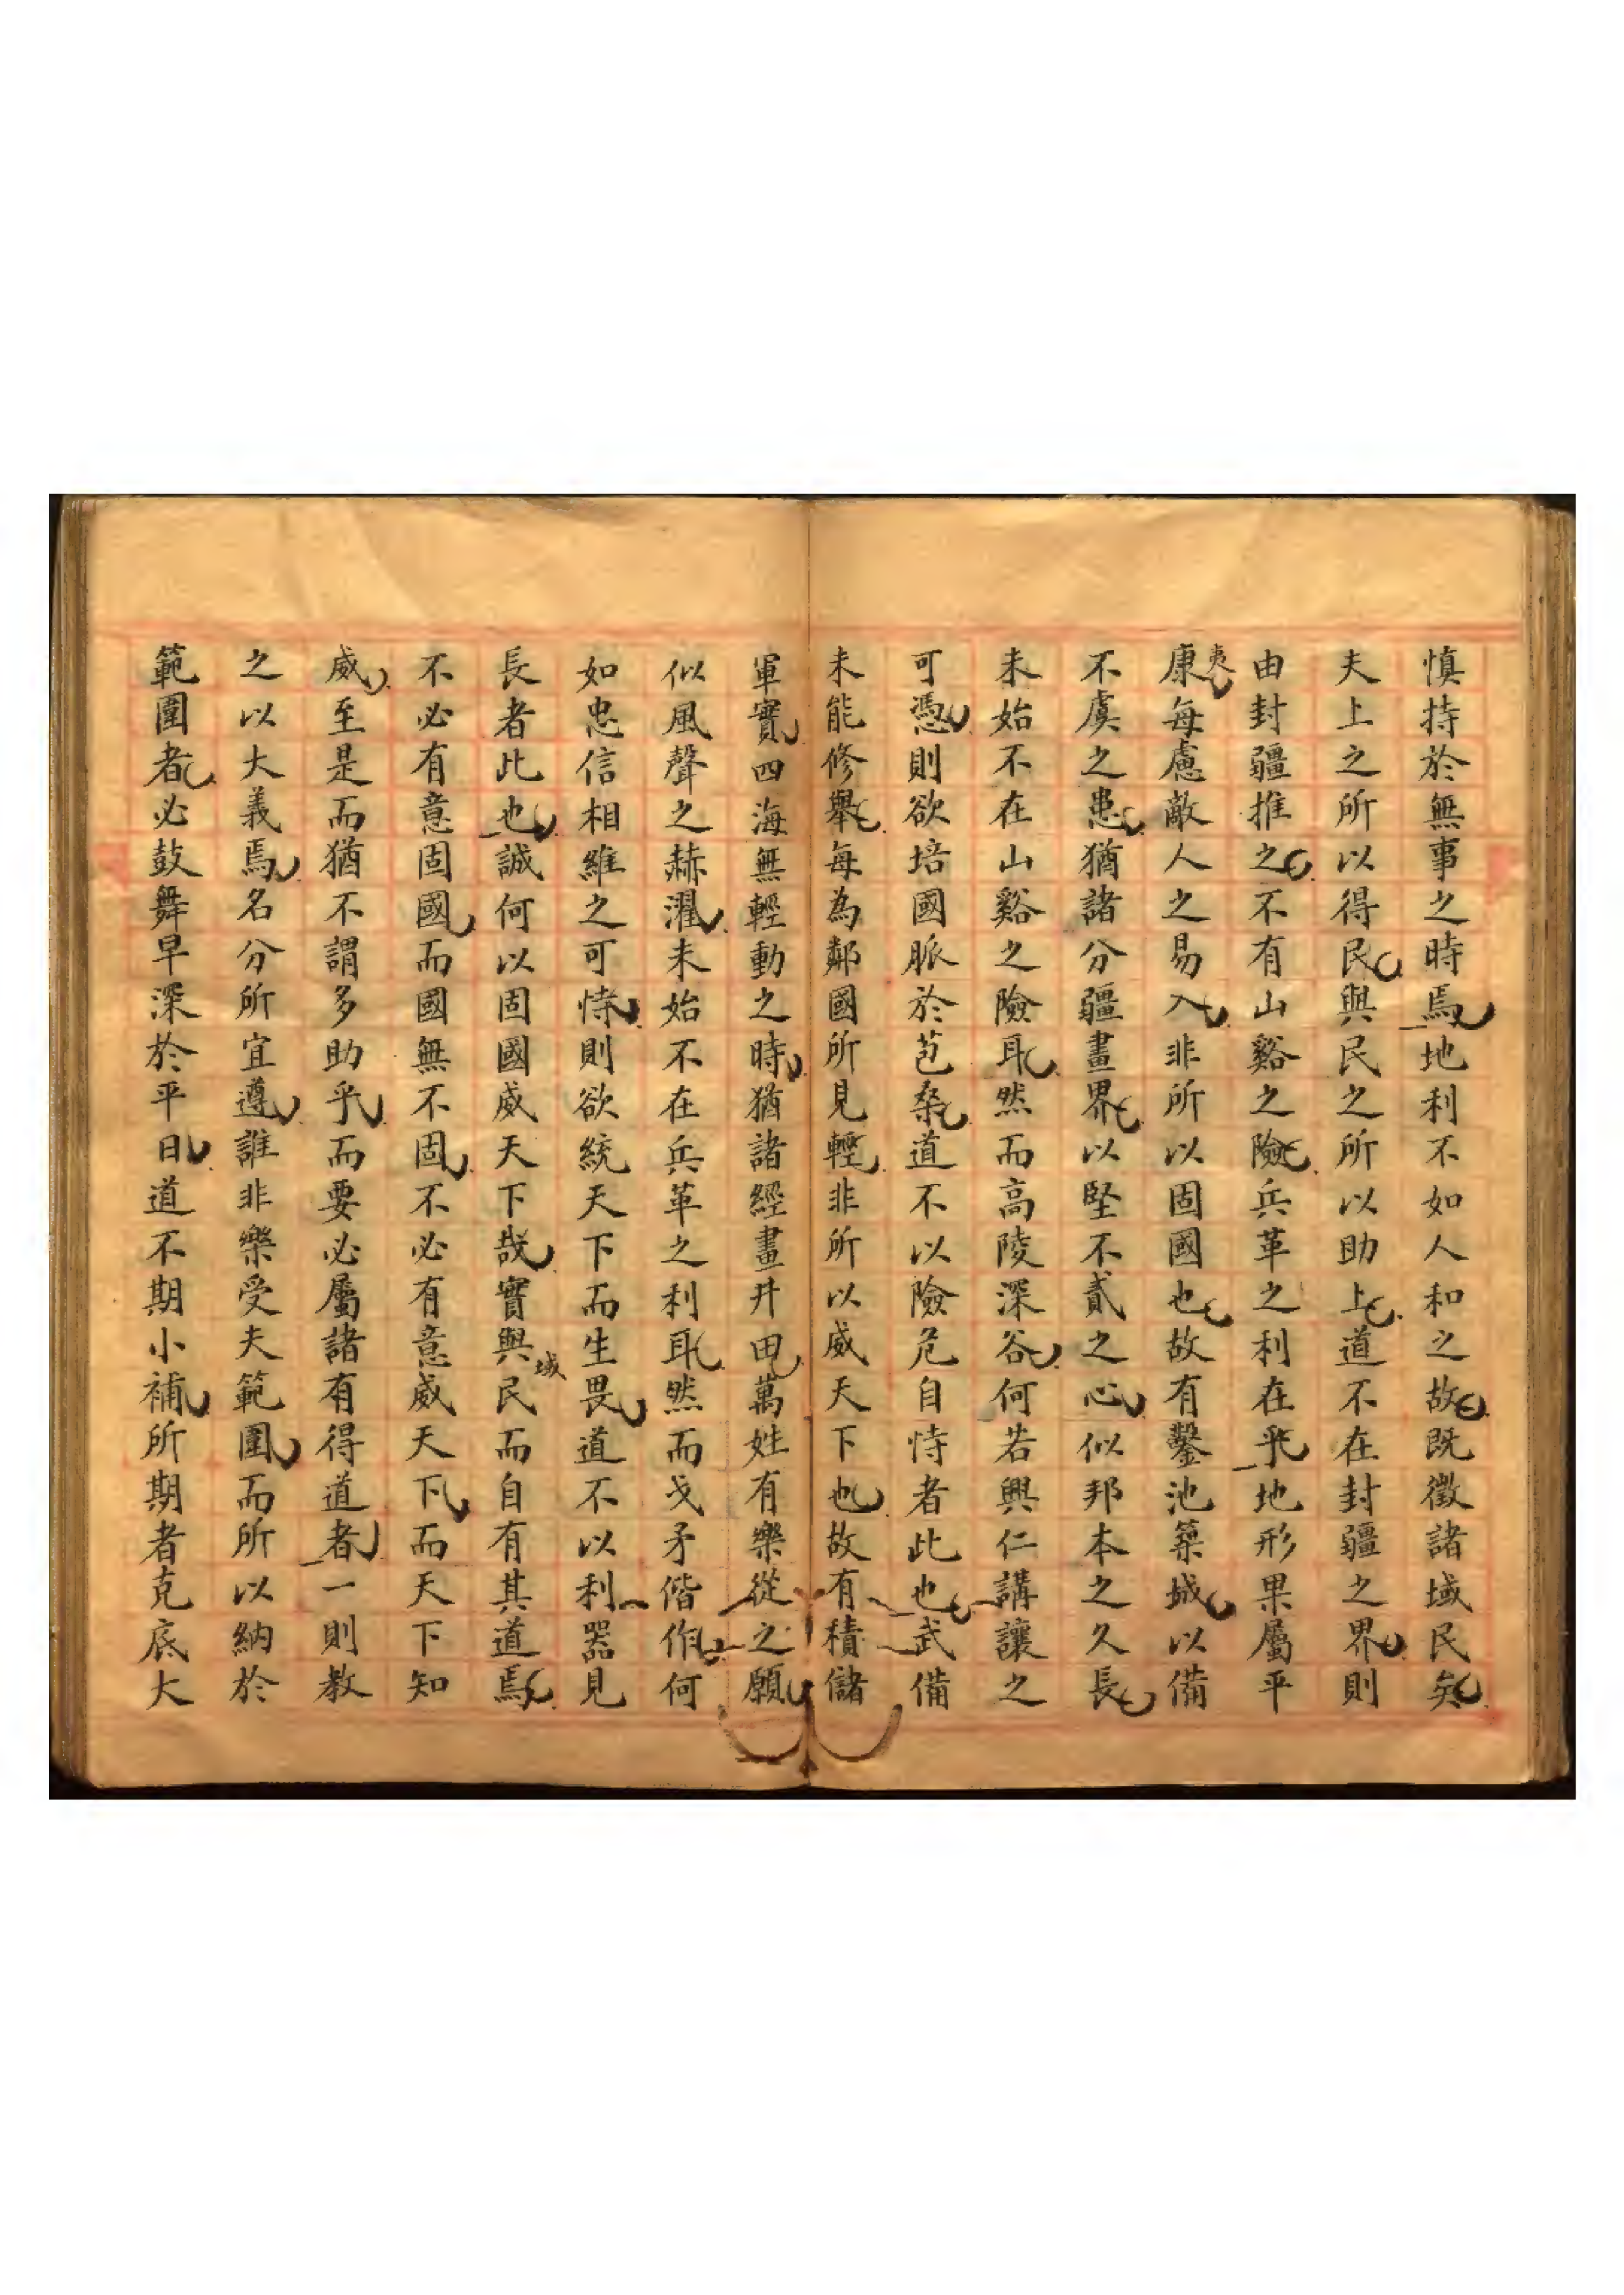 慎持於無事之時焉地利不如人和之故既徵諸域民矣
夫上之所以得民與民之所以助上道不在封疆之界則
由封疆推之不有山谿之險兵革之利在乎地形果屬平
康夷每慮敵人之易入非所以固國也故有鑿池築城以備
不虞之患猶諸分疆畫界以堅不貳之心似邦本之久長
未始不在山谿之險耳然而高陵深谷何若興仁講讓之
可憑則欲培國脈於苞桑道不以險危自恃者此也武備
未能修舉每為鄰國所見輕非所以威天下也故有積儲
軍實四海無輕動之時猶諸經畫井田萬姓有樂從之願
似風聲之赫濯未始不在兵革之利耳然而戈矛偕作何
如忠信相維之可恃則欲統天下而生畏道不以利器見
長者此也誠何以固國威天下哉實與域民而自有其道焉
不必有意固國而國無不固不必有意威天下而天下知
威至是而猶不謂多助乎而要必屬諸有得道者一則教
之以大義焉名分所宜遵誰非樂受夫範圍而所以納於
範圍者必鼓舞早深於平日道不期小補所期者克底大